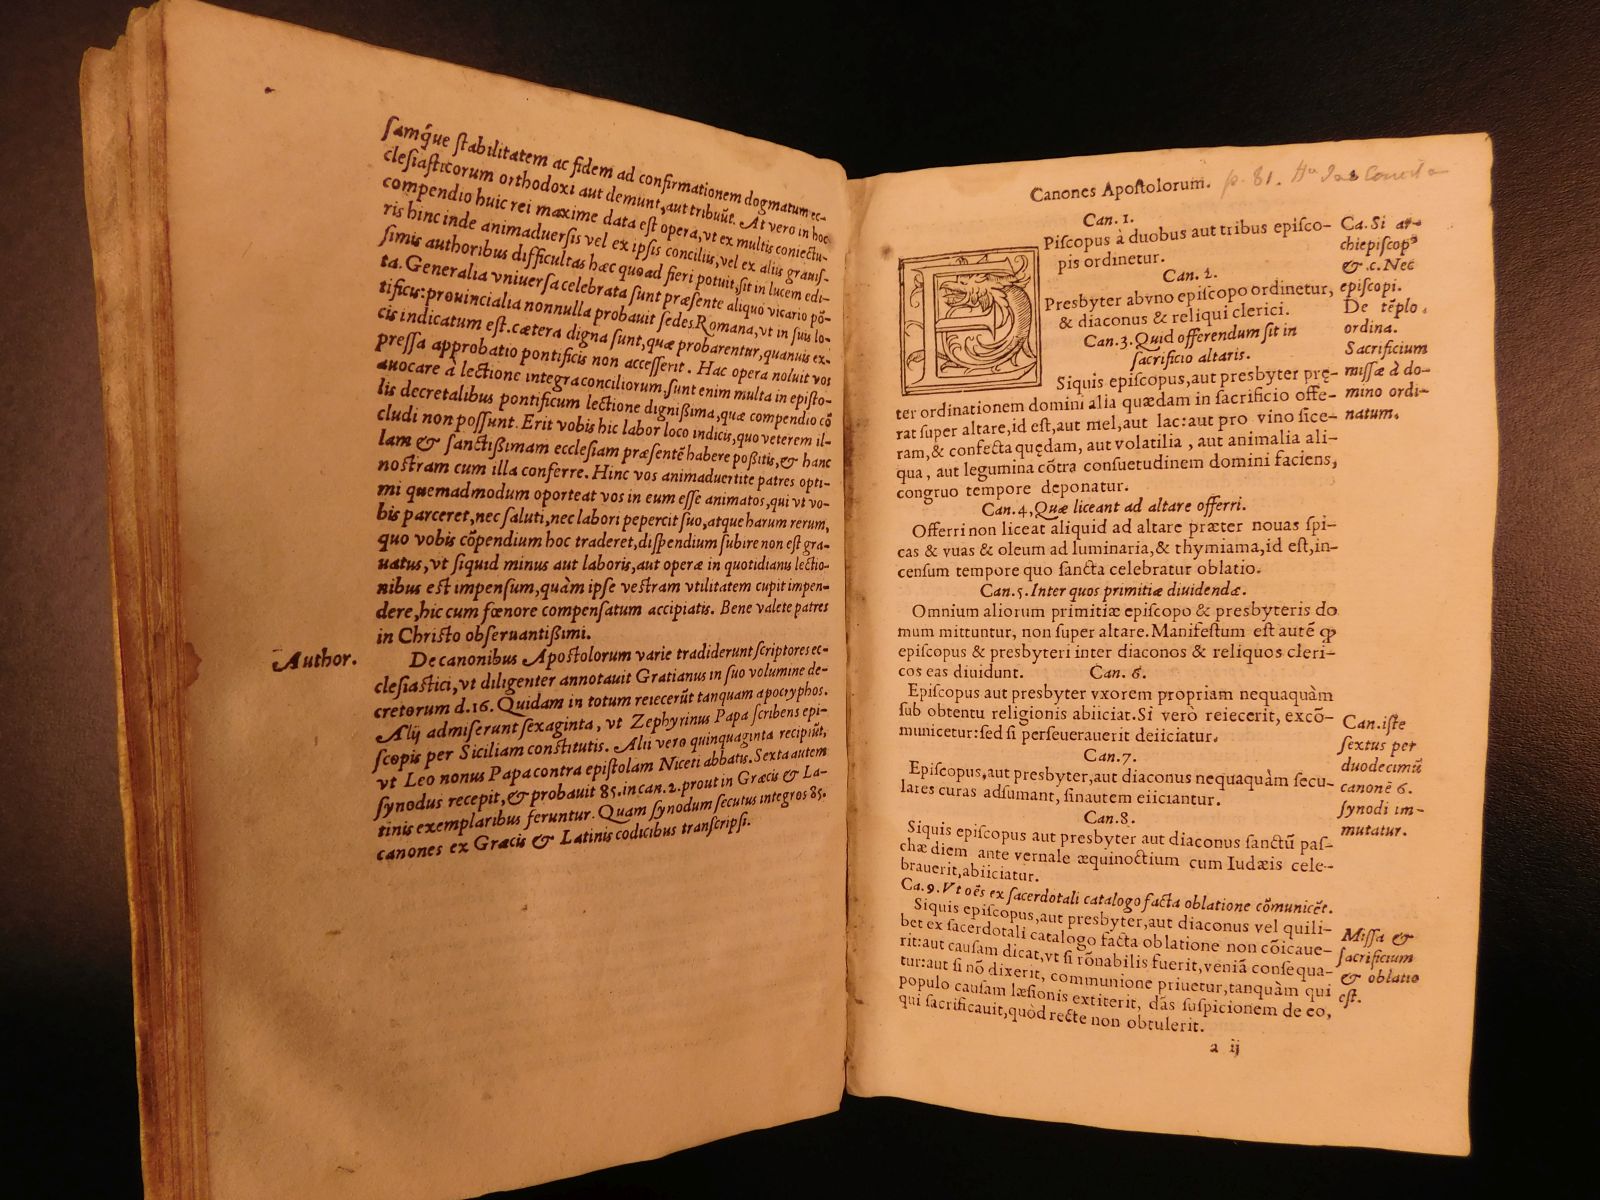 samq́ue stabilitatem ac fidem ad confirmationem dogmatum ec-
clesiasticorum orthodoxi aut demunt, aut tribuũt. At vero in hoc
compendio huic rei maxime data est opera, vt ex multis coniectu-
ris hinc inde animaduersis vel ex ipsis conciliis, vel ex aliis grauis-
simis authoribus difficultas hæc quoad fieri potuit, sit in lucem edi-
ta. Generalia vniuersa celebrata sunt præsente aliquo vicario põ-
tificis: prouincialia nonnulla probauit sedes Romana, vt in suis lo-
cis indicatum est. cætera digna sunt, quæ probarentur, quanuis ex-
pressa approbatio pontificis non accesserit. Hac opera noluit vos
auocare à lectione integra conciliorum, sunt enim multa in episto-
lis decretalibus pontificum lectione dignißima, quæ compendio cõ
cludi non possunt. Erit vobis hic labor loco indicis, quo veterem il-
lam & sanctißimam ecclesiam præsentẽ habere poßitis, & hanc
nostram cum illa conferre. Hinc vos animaduertite patres opti-
mi quemadmodum oporteat vos in eum esse animatos, qui vt vo-
bis parceret, nec saluti, nec labori pepercit suo, atque harum rerum,
quo vobis cõpendium hoc traderet, dispendium subire non est gra-
uatus, vt siquid minus aut laboris, aut operæ in quotidianis lectio-
nibus est impensum, quàm ipse vestram vtilitatem cupit impen-
dere, hic cum fœnore compensatum accipiatis. Bene valete patres
in Christo obseruantißimi.
Author.
De canonibus Apostolorum varie tradiderunt scriptores ec-
clesiastici, vt diligenter annotauit Gratianus in suo volumine de-
cretorum d.16. Quidam in totum reiecerũt tanquam apocryphos.
Alij admiserunt sexaginta, vt Zephyrinus Papa scribens epi-
scopis per Siciliam constitutis. Alii vero quinquaginta recipiũt,
vt Leo nonus Papa contra epistolam Niceti abbatis. Sexta autem
synodus recepit, & probauit 85. in can. 2. prout in Græcis & La-
tinis exemplaribus feruntur. Quam synodum secutus integros 85.
canones ex Græcis & Latinis codicibus transcripsi.
Canones Apostolorum. p. 81.
Can. 1.
EPiscopus à duobus aut tribus episco-
pis ordinetur.
Can. 2.
Presbyter ab vno episcopo ordinetur,
& diaconus & reliqui clerici.
Can. 3. Quid offerendum sit in
sacrificio altaris.
Siquis episcopus, aut presbyter prę-
ter ordinationem domini alia quædam in sacrificio offe-
rat super altare, id est, aut mel, aut lac: aut pro vino sice-
ram, & confecta quędam, aut volatilia, aut animalia ali-
qua, aut legumina cõtra consuetudinem domini faciens,
congruo tempore deponatur.
Can. 4, Quæ liceant ad altare offerri.
Offerri non liceat aliquid ad altare præter nouas spi-
cas & vuas & oleum ad luminaria, & thymiama, id est, in-
censum tempore quo sancta celebratur oblatio.
Can. 5. Inter quos primitiæ diuidendæ.
Omnium aliorum primitiæ episcopo & presbyteris do
mum mittuntur, non super altare. Manifestum est autẽ ꝙ
episcopus & presbyteri inter diaconos & reliquos cleri-
cos eas diuidunt. Can. 6.
Episcopus aut presbyter vxorem propriam nequaquàm
sub obtentu religionis abiiciat. Si verò reiecerit, excõ-
municetur: sed si perseuerauerit deiiciatur.
Can. 7.
Episcopus, aut presbyter, aut diaconus nequaquàm secu-
lares curas adsumant, sinautem eiiciantur.
Can. 8.
Siquis episcopus aut presbyter aut diaconus sanctũ pas-
chæ diem ante vernale æquinoctium cum Iudæis cele-
brauerit, abiiciatur.
Ca. 9. Vt oẽs ex sacerdotali catalogo facta oblatione cõmunicẽt.
Siquis episcopus, aut presbyter, aut diaconus vel quili-
bet ex sacerdotali catalogo facta oblatione non cõicaue-
rit: aut causam dicat, vt si rõnabilis fuerit, veniã consequa-
tur: aut si nõ dixerit, communione priuetur, tanquàm qui
populo causam læsionis extiterit, dãs suspicionem de eo,
qui sacrificauit, quòd recte non obtulerit.
a ij
Ca. Si ar-
chiepiscop⁹
& c. Nec
episcopi.
De tẽplo.
ordina.
Sacrificium
missæ à do-
mino ordi-
natum.
Can. iste
sextus per
duodecimũ
canonẽ 6.
synodi im-
mutatur.
Missa &
sacrificium
& oblatio
est.